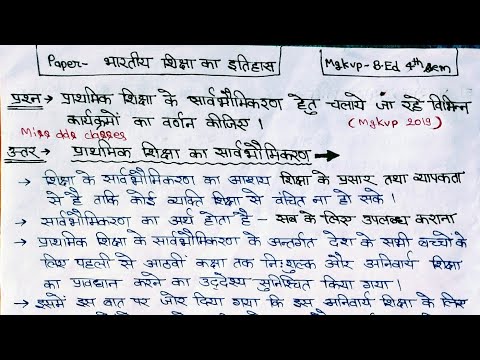 Paper- भारतीय शिक्षा का इतिहास
Mgkvp - B.Ed 4th Sem
प्रश्न → प्राथमिक शिक्षा के सार्वभौमिकरण हेतु चलाये जा रहे विभिन्न
कार्यक्रमों का वर्णन कीजिए । (Mgkvp 2019)
Miss dda classes
उत्तर → प्राथमिक शिक्षा का सार्वभौमिकरण →
→ शिक्षा के सार्वभौमिकरण का आशय शिक्षा के प्रसार तथा व्यापकता
से है ताकि कोई व्यक्ति शिक्षा से वंचित ना हो सके ।
→ सार्वभौमिकरण का अर्थ होता है - सब के लिए उपलब्ध कराना
→ प्राथमिक शिक्षा के सार्वभौमिकरण के अन्तर्गत देश के सभी बच्चों के
लिए पहली से आठवीं कक्षा तक निःशुल्क और अनिवार्य शिक्षा
का प्रावधान करने का उद्देश्य सुनिश्चित किया गया ।
→ इसमें इस बात पर जोर दिया गया कि इस अनिवार्य शिक्षा के लिए